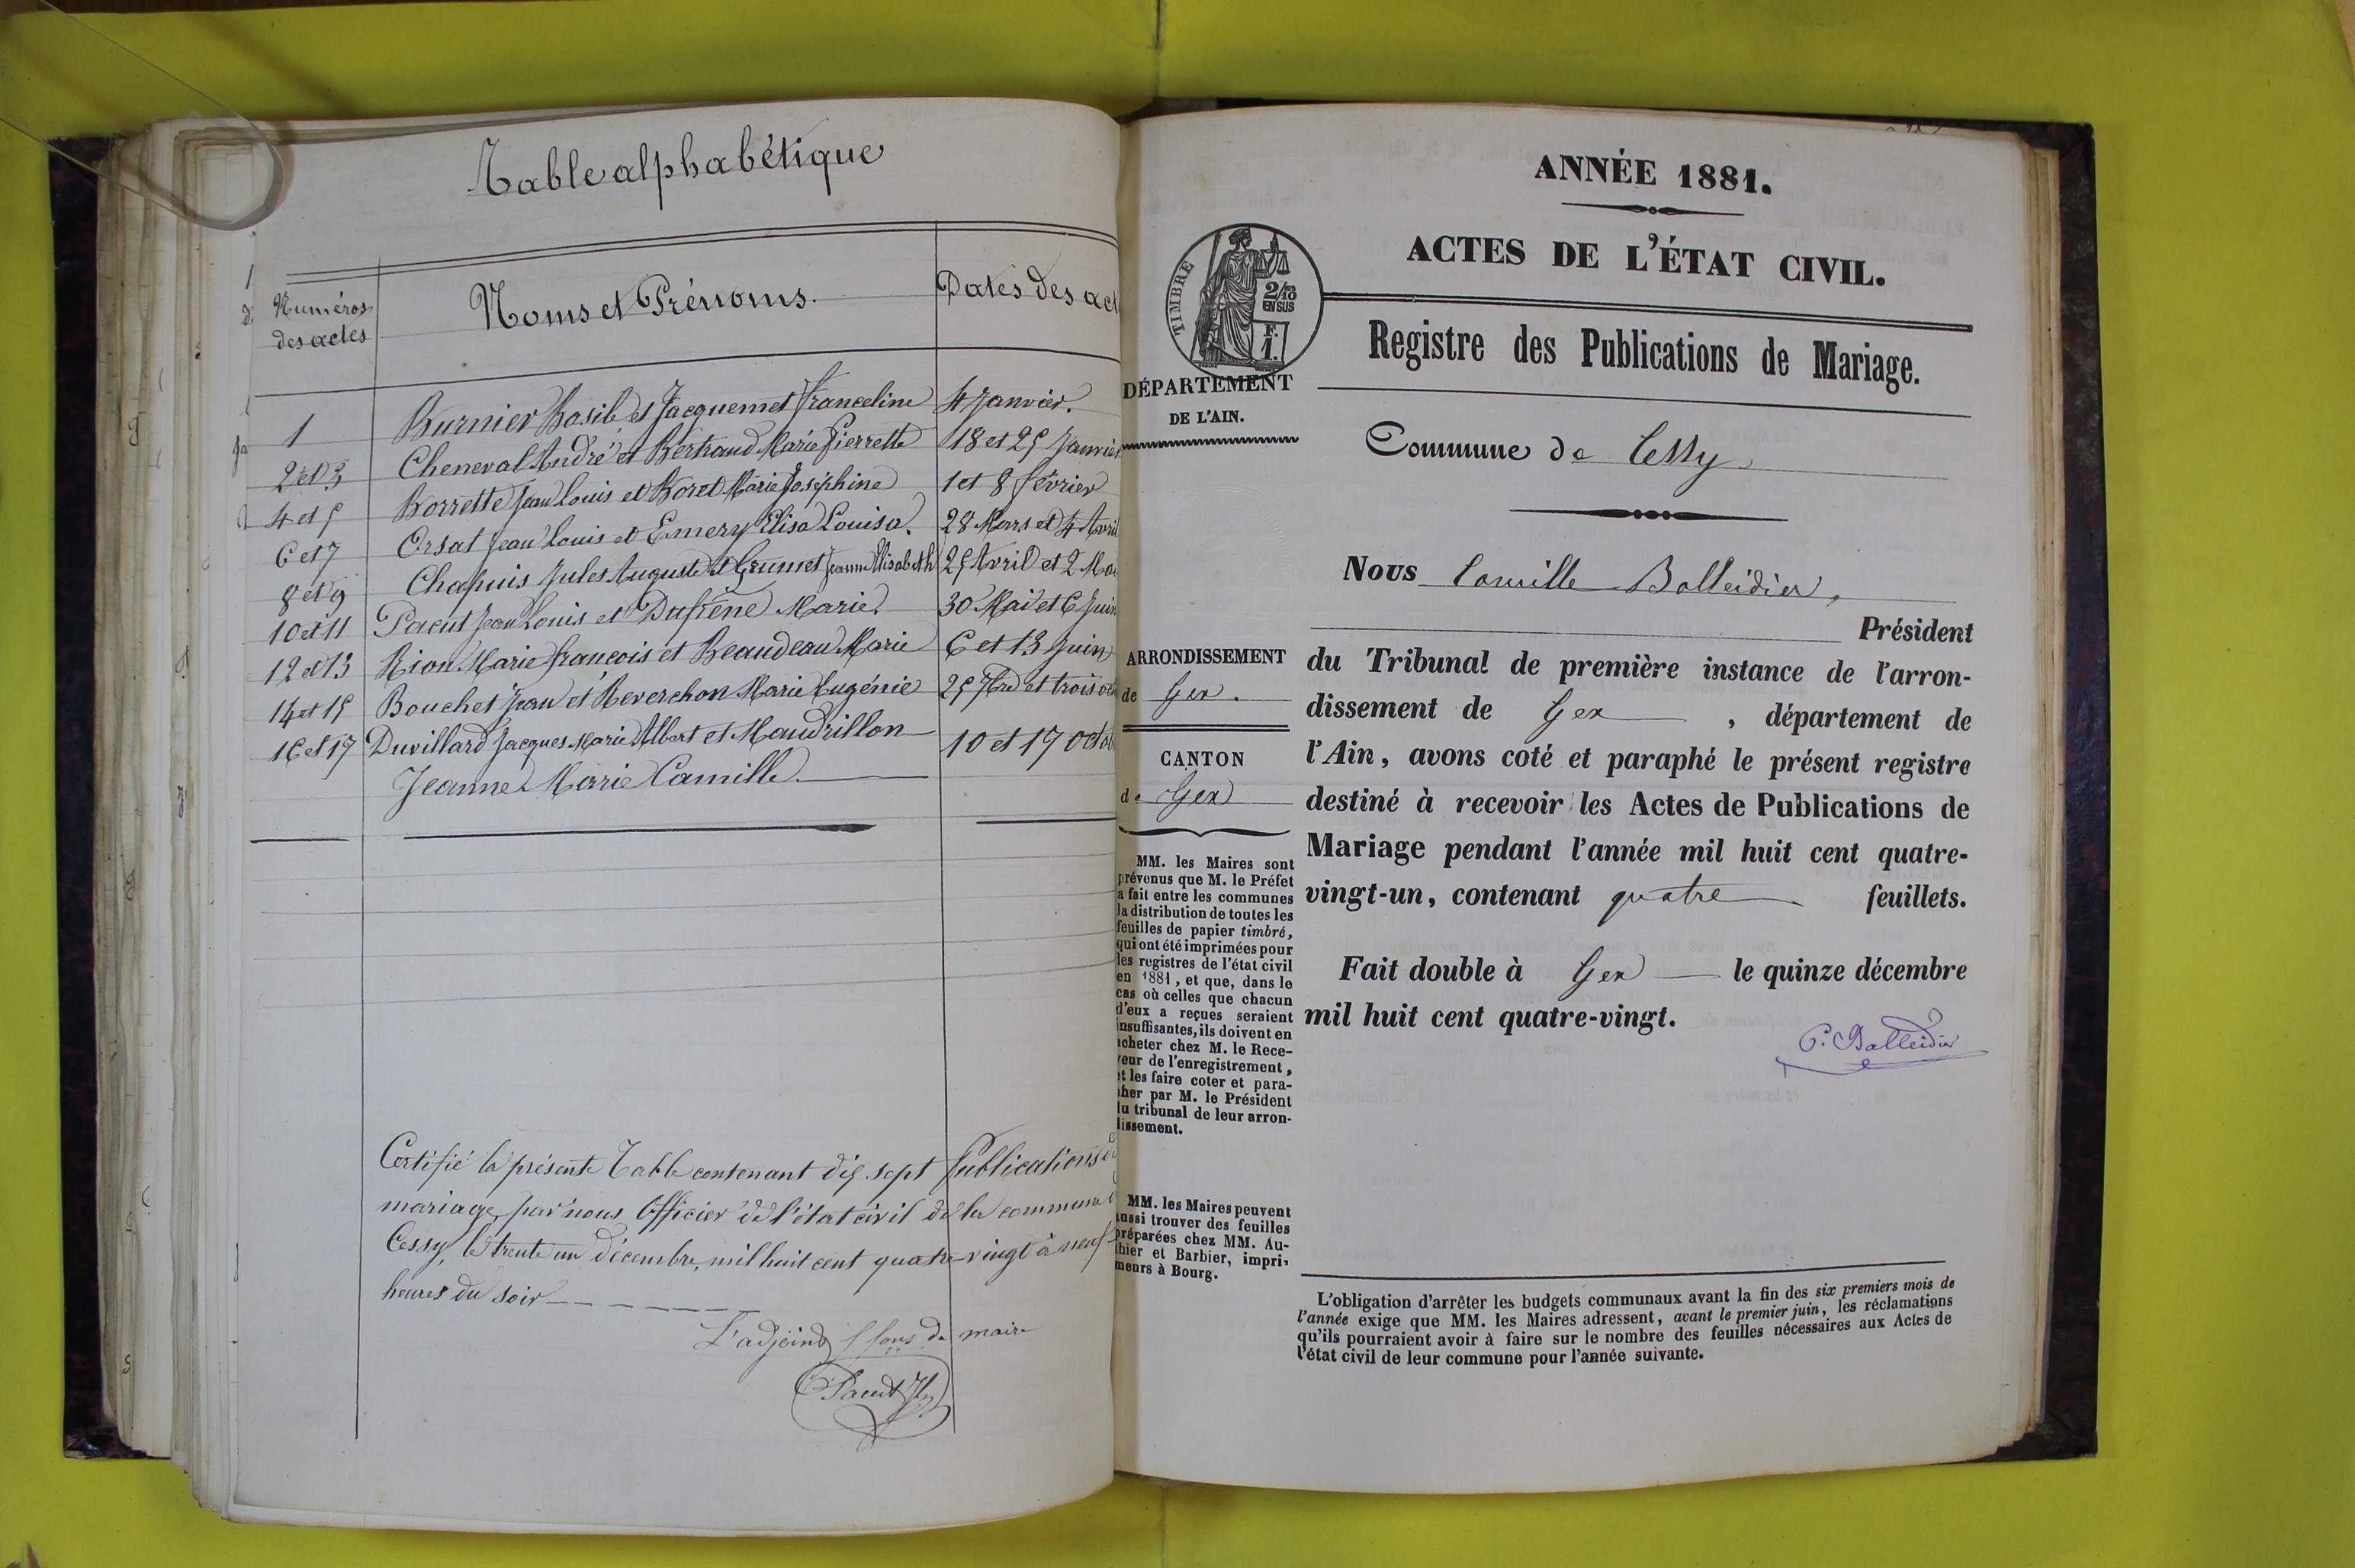 Table alphabétique
Numéros des actes
Noms et Prénoms.
Dates des act
1 Burnier Basile et Jacquemet Franceline 4 Janvier.
2 et 3 Cheneval André et Bertrand Marie Pierrette 18 et 25 Janvier
4 et 5 Borrette Jean Louis et Boret Marie Joséphine 1 et 8 février
6 et 7 Orsat Jean Louis et Emery Elisa Louisa. 28 Mars et 4 Avril
8 et 9 Chapuis Jules Auguste et Grumet Jeanne Elisabeth 25 Avril et 2 Mai
10 et 11 Pacut Jean Louis et Dufrène Marie. 30 Mai et 6 Juin
12 et 13 Rion Marie François et Beaudeau Marie 6 et 13 Juin
14 et 15 Bouchet Jean et Reverchon Marie Eugénie 25 7bre et trois oct
16 et 17 Duvillard Jacques Marie Albert et Maudrillon 10 et 17 Octob
Jeanne Marie Camille.
Certifié la présente Table contenant dix sept Publications de
mariage, par nous Officier de l'état civil de la commune d
Cessy, le trente un décembre, mil huit cent quatre-vingt à neuf
heures du soir
L'adjoint ff fons de maire
Pacut
ANNÉE 1881.
ACTES DE L'ÉTAT CIVIL.
TIMBRE
2/10
EN SUS
F.
1.
Registre des Publications de Mariage.
DÉPARTEMENT
DE L'AIN.
Commune de Cessy
Nous Camille Balleidier,
Président
du Tribunal de première instance de l'arron-
dissement de Gex , département de
l'Ain, avons coté et paraphé le présent registre
destiné à recevoir les Actes de Publications de
Mariage pendant l'année mil huit cent quatre-
vingt-un, contenant quatre feuillets.
Fait double à Gex le quinze décembre
mil huit cent quatre-vingt.
C. Balleidier
ARRONDISSEMENT
de Gex.
CANTON
de Gex
MM. les Maires sont
prévenus que M. le Préfet
a fait entre les communes
la distribution de toutes les
feuilles de papier timbré,
qui ont été imprimées pour
les registres de l'état civil
en 1881, et que, dans le
cas où celles que chacun
d'eux a reçues seraient
insuffisantes, ils doivent en
acheter chez M. le Rece-
veur de l'enregistrement,
et les faire coter et para-
pher par M. le Président
du tribunal de leur arron-
dissement.
MM. les Maires peuvent
aussi trouver des feuilles
préparées chez MM. Au-
thier et Barbier, impri-
meurs à Bourg.
L'obligation d'arrêter les budgets communaux avant la fin des six premiers mois de
l'année exige que MM. les Maires adressent, avant le premier juin, les réclamations
qu'ils pourraient avoir à faire sur le nombre des feuilles nécessaires aux Actes de
l'état civil de leur commune pour l'année suivante.